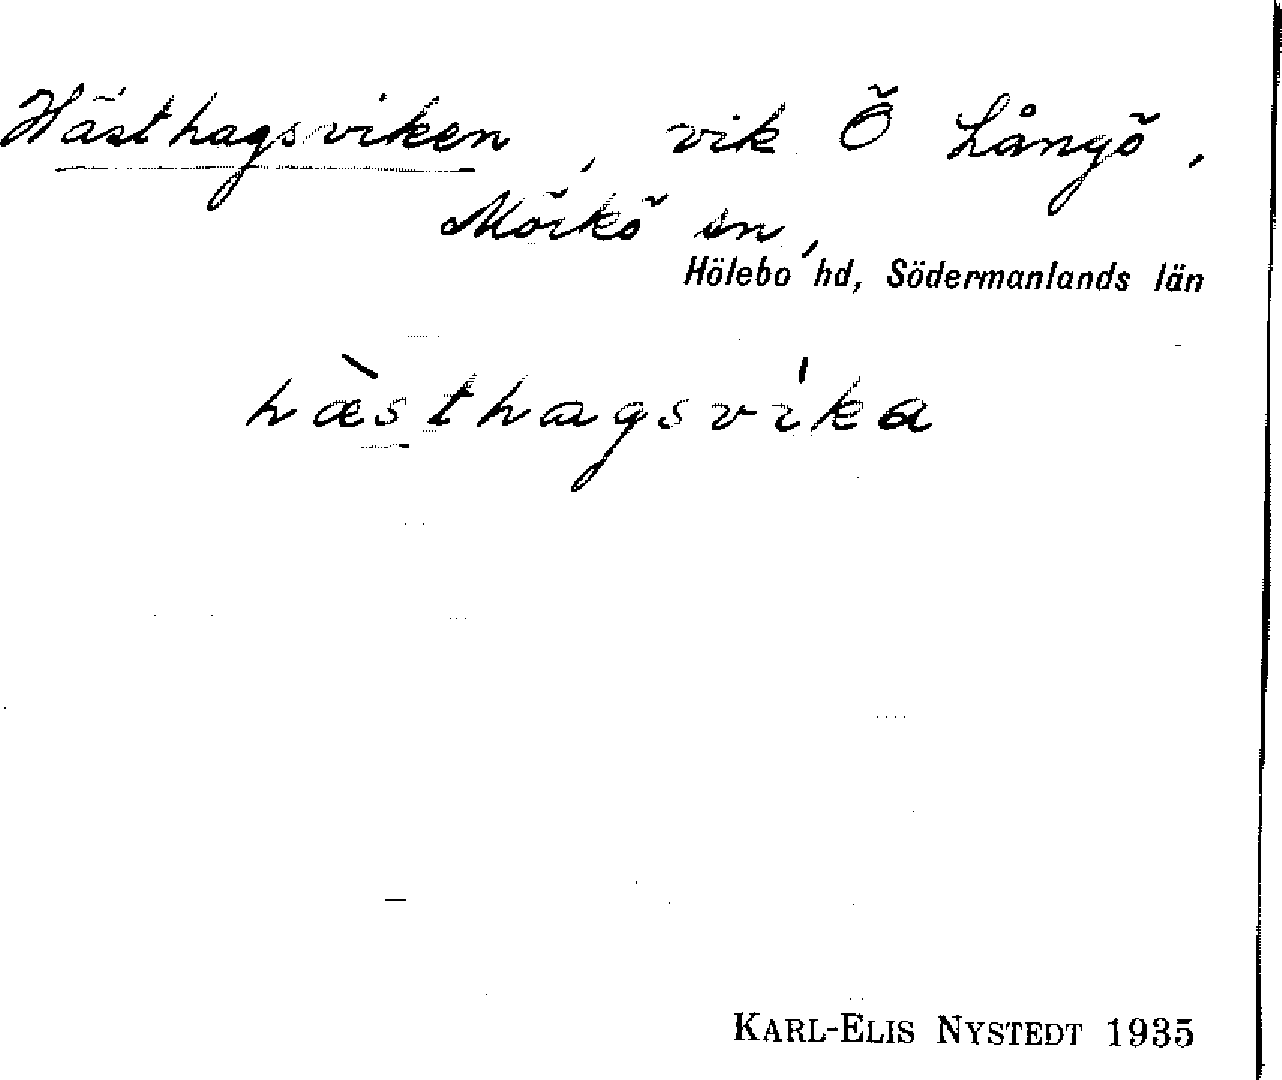 Hästhagsviken, vik Ö Långö,
Mörkö sn,
Hölebo hd, Södermanlands län
hæ̀sthagsvíka
KARL-ELIS NYSTEDT 1935